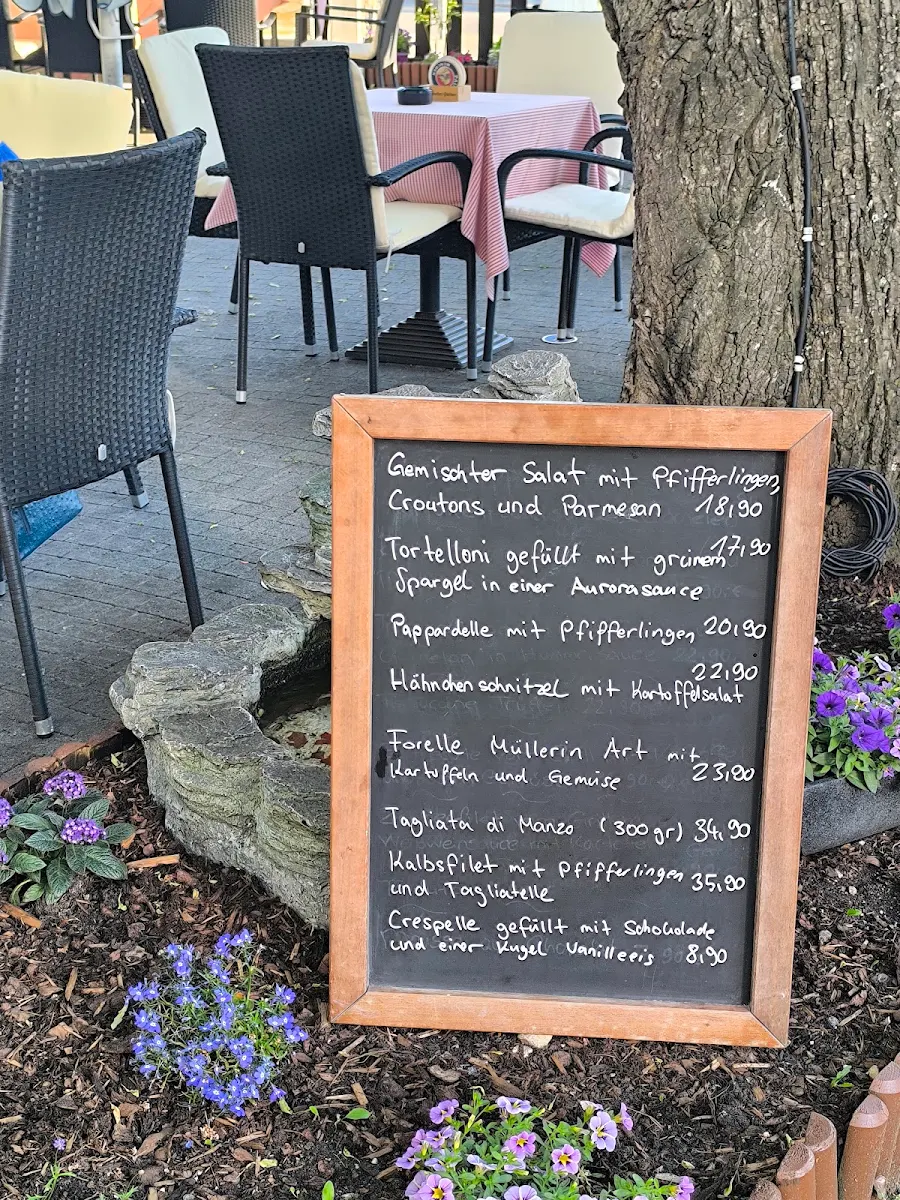 Gemischter Salat mit Pfifferlingen,
Croutons und Parmesan 18,90
Tortelloni gefüllt mit grünem 17,90
Spargel in einer Aurorasauce
Pappardelle mit Pfifferlingen 20,90
22,90
Hähnchenschnitzel mit Kartoffelsalat
Forelle Müllerin Art mit
Kartoffeln und Gemüse 23,90
Tagliata di Manzo (300gr) 34,90
Kalbsfilet mit Pfifferlingen 35,90
und Tagliatelle
Crespelle gefüllt mit Schokolade
und einer Kugel Vanilleeis 8,90